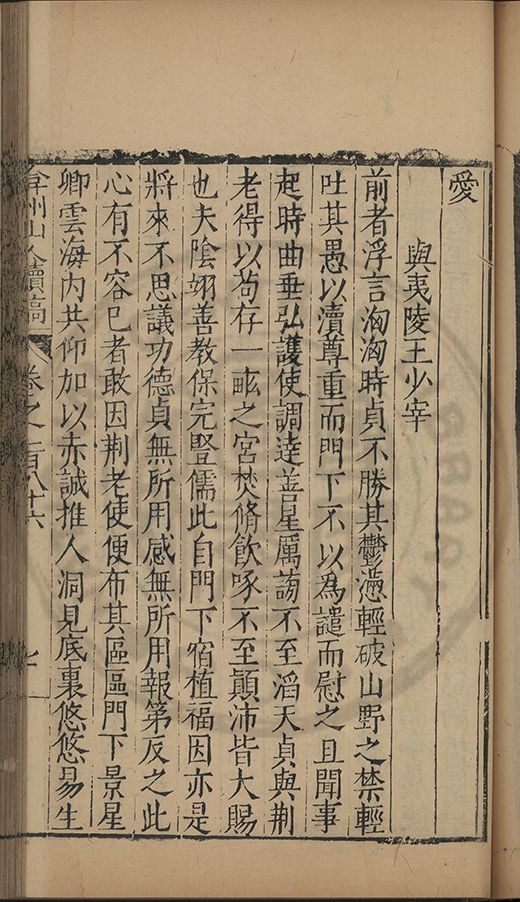 愛
與夷陵王少宰
前者浮言洶洶時貞不勝其鬱懣輕破山野之禁輕
吐其愚以瀆尊重而門下不以為譴而慰之且聞事
起時曲垂弘護使調達善星厲謗不至滔天貞與荆
老得以苟存一畞之宮焚脩飲啄不至顛沛皆大賜
也夫陰翊善教保完豎儒此自門下宿植福因亦是
將來不思議功德貞無所用感無所用報第反之此
心有不容已者敢因荆老使便布其區區門下景星
卿雲海内共仰加以赤誠推人洞見底裏悠悠易生
弇州山人續稿 卷之一百八十六 七